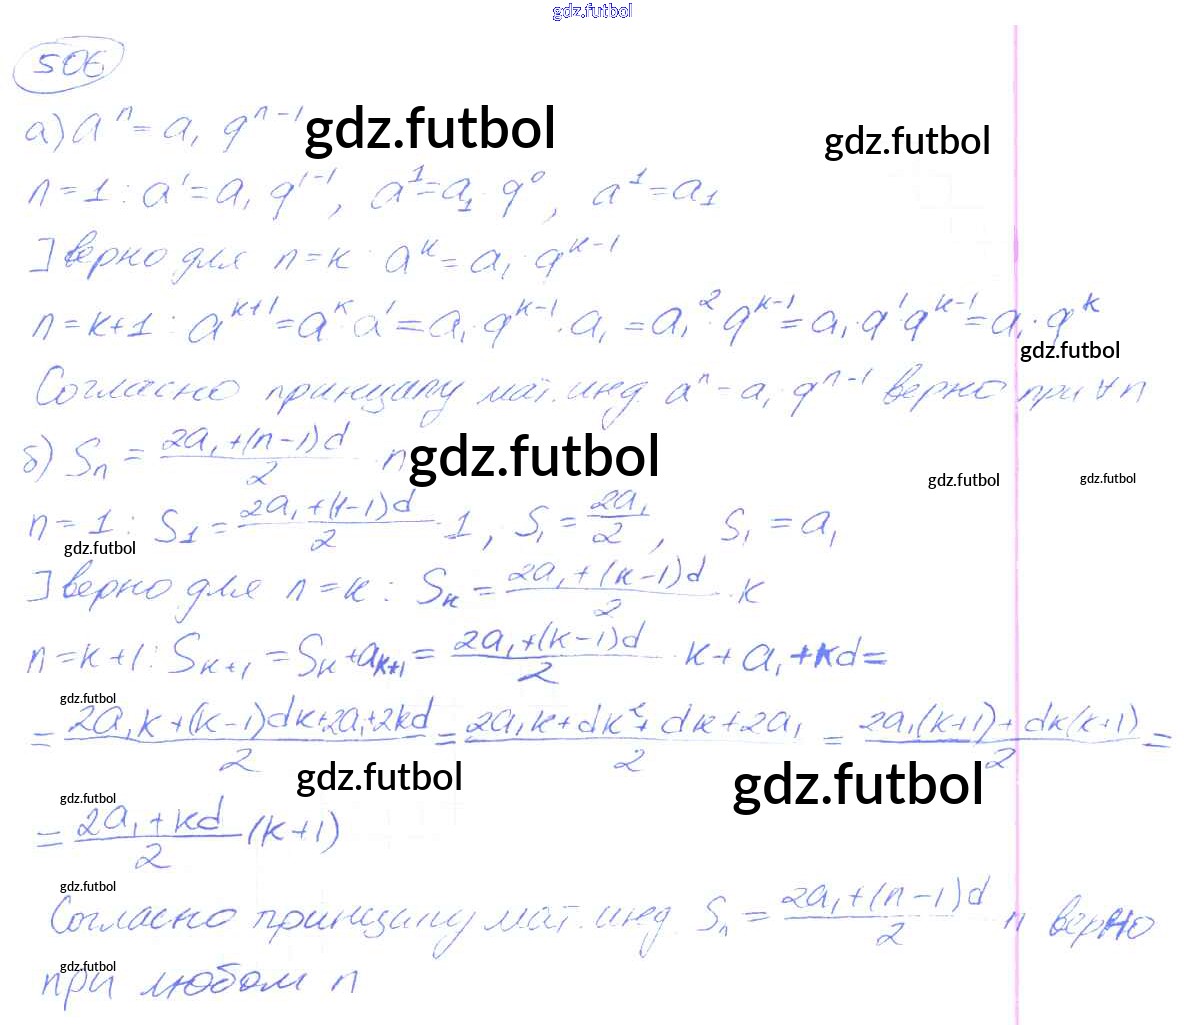 gdz.futbol
506
а) aⁿ = a₁ qⁿ⁻¹ gdz.futbol gdz.futbol
n=1: a¹ = a₁ q¹⁻¹, a¹ = a₁·q⁰, a¹ = a₁
] верно для n=k: aᵏ = a₁·qᵏ⁻¹
n=k+1: aᵏ⁺¹ = aᵏ·a¹ = a₁·qᵏ⁻¹·a₁ = a₁²·qᵏ⁻¹ = a₁·q¹·qᵏ⁻¹ = a₁·qᵏ
gdz.futbol
Согласно принципу мат. инд. aⁿ = a₁·qⁿ⁻¹ верно при ∀ n
б) Sₙ = (2a₁+(n-1)d)/2 · n gdz.futbol
gdz.futbol gdz.futbol
n=1: S₁ = (2a₁+(1-1)d)/2 · 1, S₁ = 2a₁/2, S₁ = a₁
gdz.futbol
] верно для n=k: Sₖ = (2a₁+(k-1)d)/2 · k
n=k+1: Sₖ₊₁ = Sₖ+aₖ₊₁ = (2a₁+(k-1)d)/2 · k + a₁+kd =
gdz.futbol
= (2a₁k+(k-1)dk+2a₁+2kd)/2 = (2a₁k+dk²+dk+2a₁)/2 = (2a₁(k+1)+dk(k+1))/2 =
gdz.futbol gdz.futbol
gdz.futbol
= (2a₁+kd)/2 (k+1)
gdz.futbol
Согласно принципу мат. инд. Sₙ = (2a₁+(n-1)d)/2 n верно
gdz.futbol
при любом n